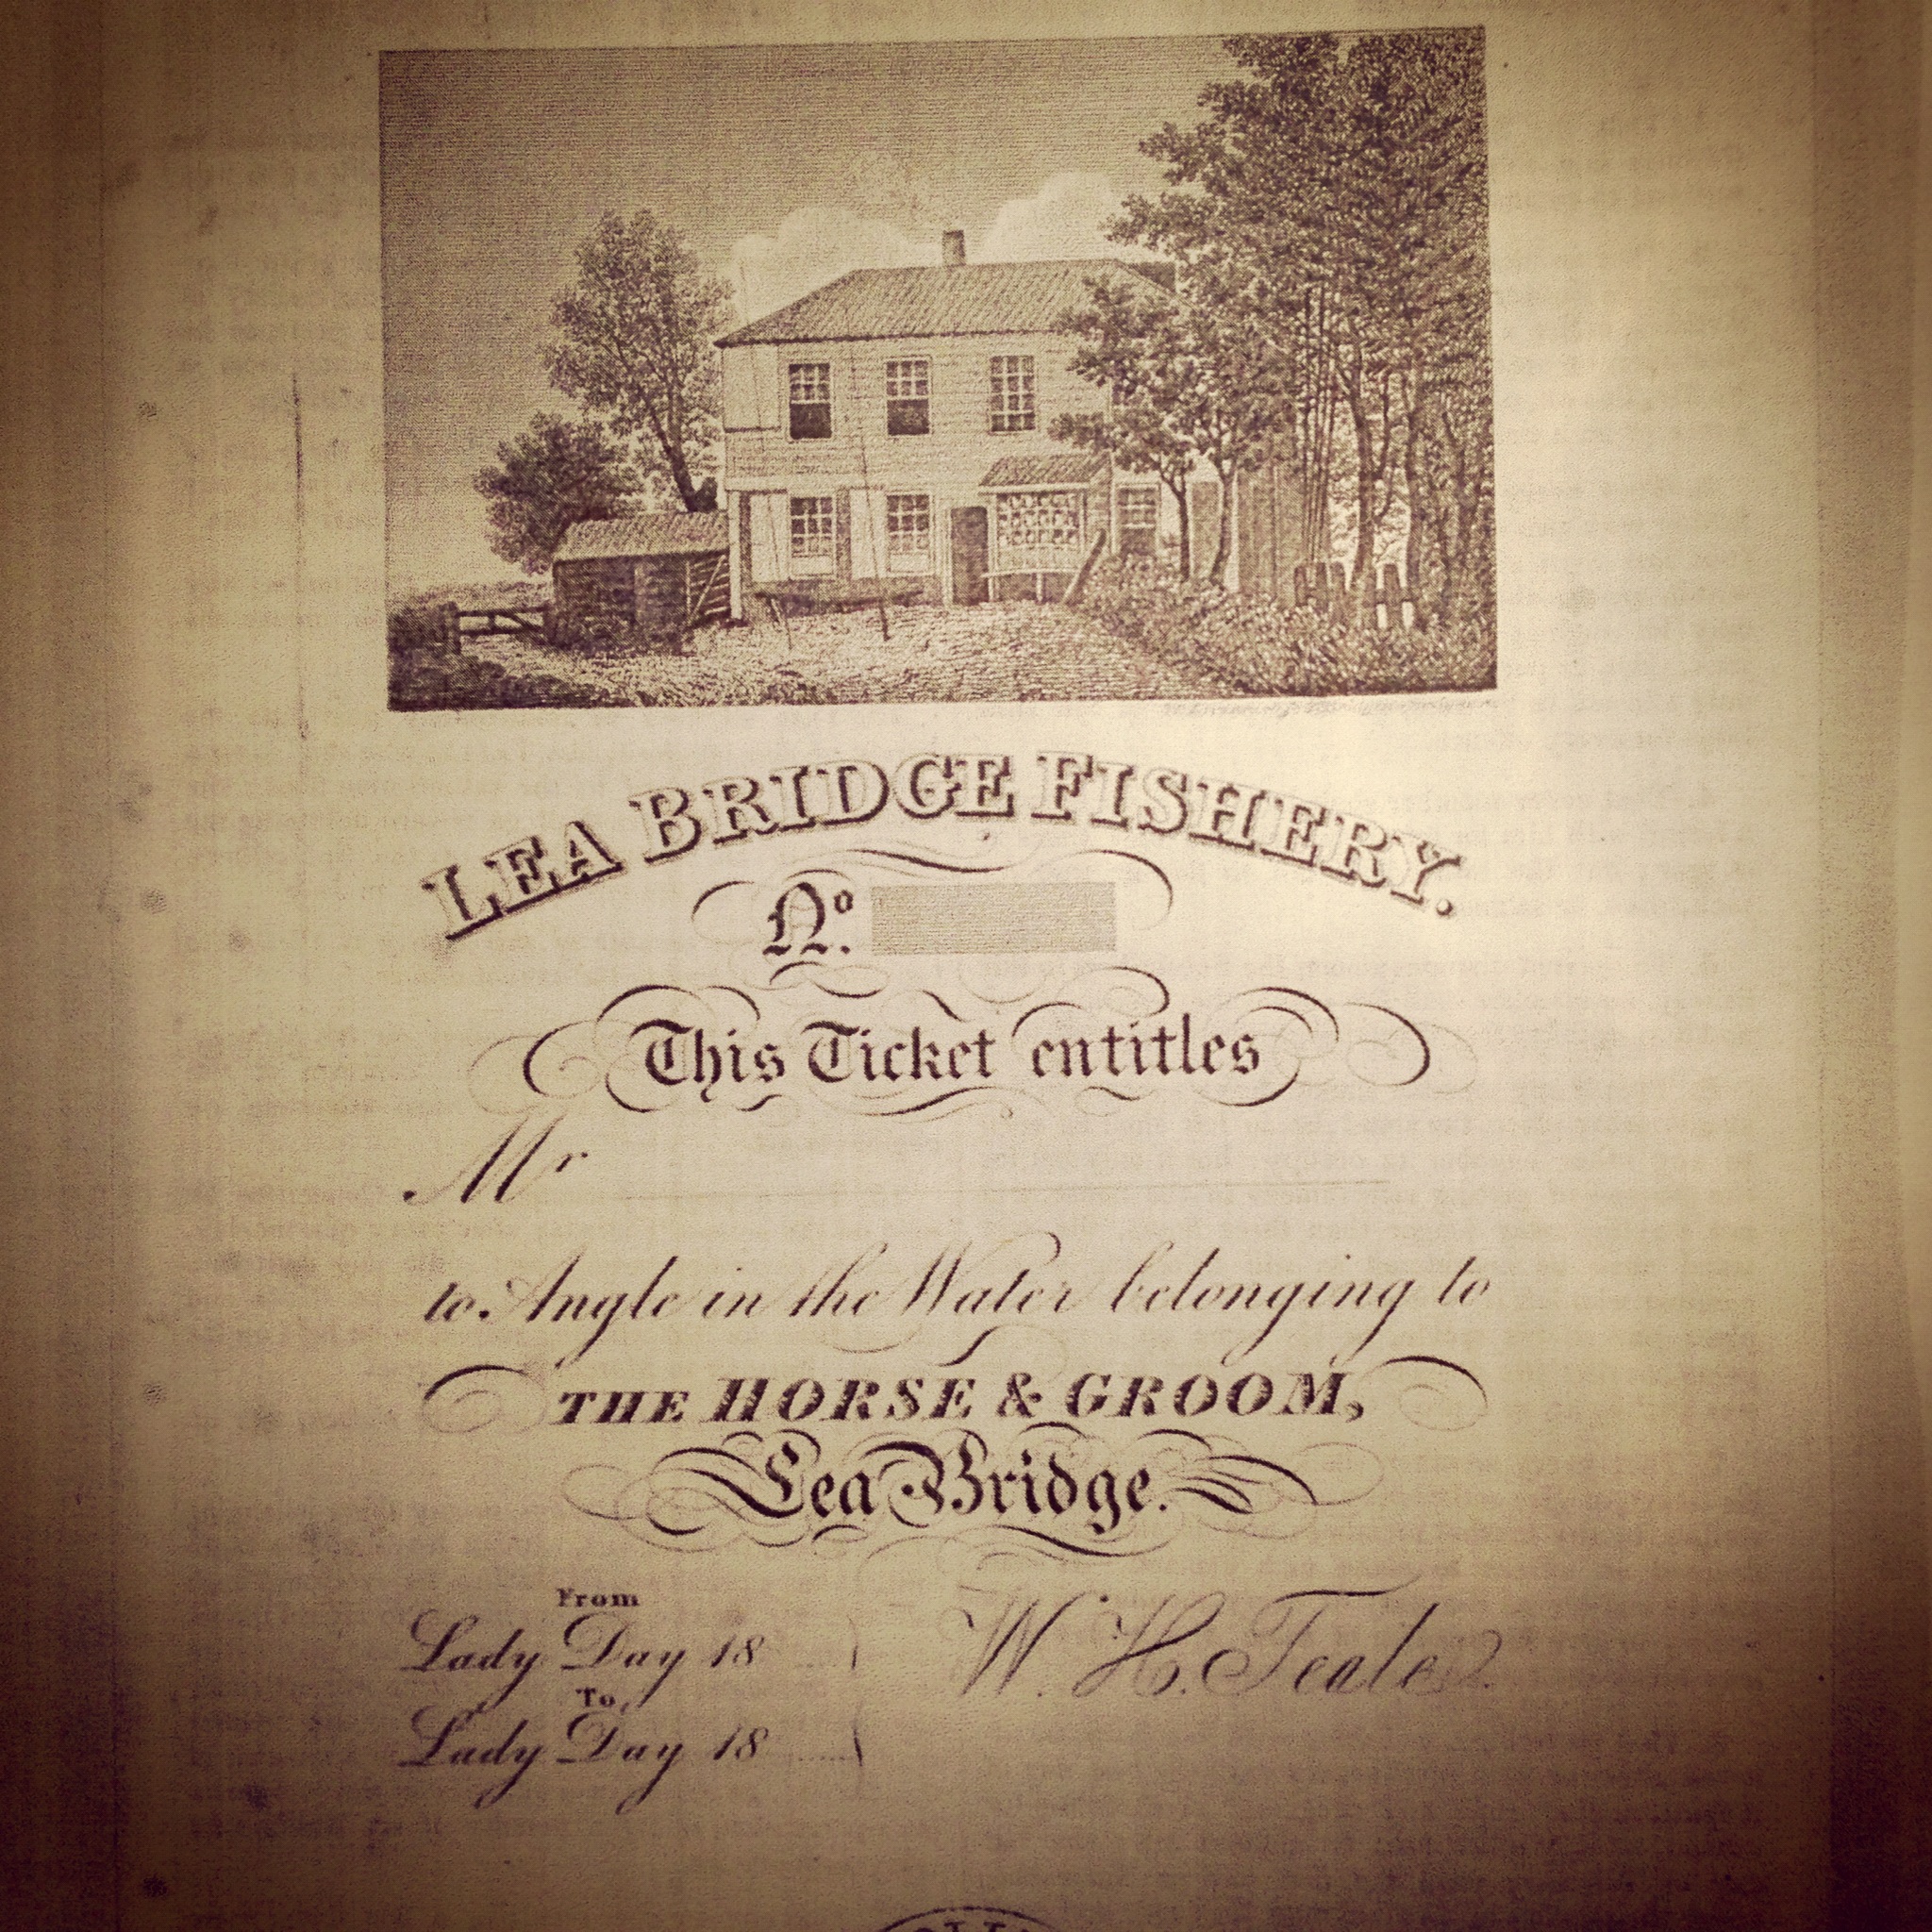 LEA BRIDGE FISHERY.
No.
This Ticket entitles
Mr
to Angle in the Water belonging to
THE HORSE & GROOM,
Lea Bridge.
From
Lady Day 18
To
Lady Day 18
W. H. Teale